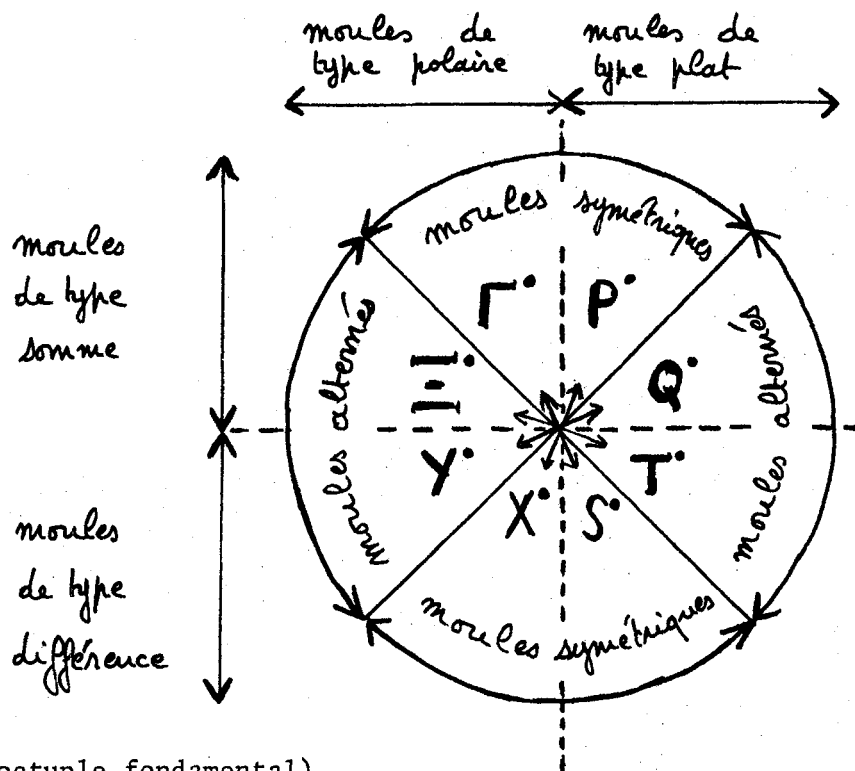 moules de
type polaire
moules de
type plat
moules
de type
somme
moules
de type
différence
moules symétriques
moules alternés
moules alternés
moules symétriques
Γ•
P•
Ξ•
Q•
Y•
T•
X•
S•
octuple fondamental)